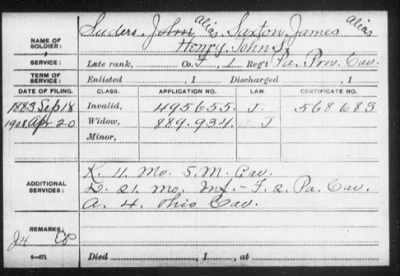 Suders, John alias Saxton, James alias
NAME OF SOLDIER: Henry, John S.
SERVICE: Late rank, Co. F, 2 Reg't Pa. Prov. Cav.
TERM OF SERVICE: Enlisted , 1 Discharged , 1
DATE OF FILING. CLASS. APPLICATION NO. LAW. CERTIFICATE NO.
1883 Sep 18 Invalid, 495655 J 568683
1908 Apr 20 Widow, 889.934 J
Minor,
ADDITIONAL SERVICES: K. 11 Mo. S.M. Cav.
21 Mo. Inf. - F. 2. Pa. Cav.
A. 4. Ohio Cav.
REMARKS:
6-671 Died , 1 , at